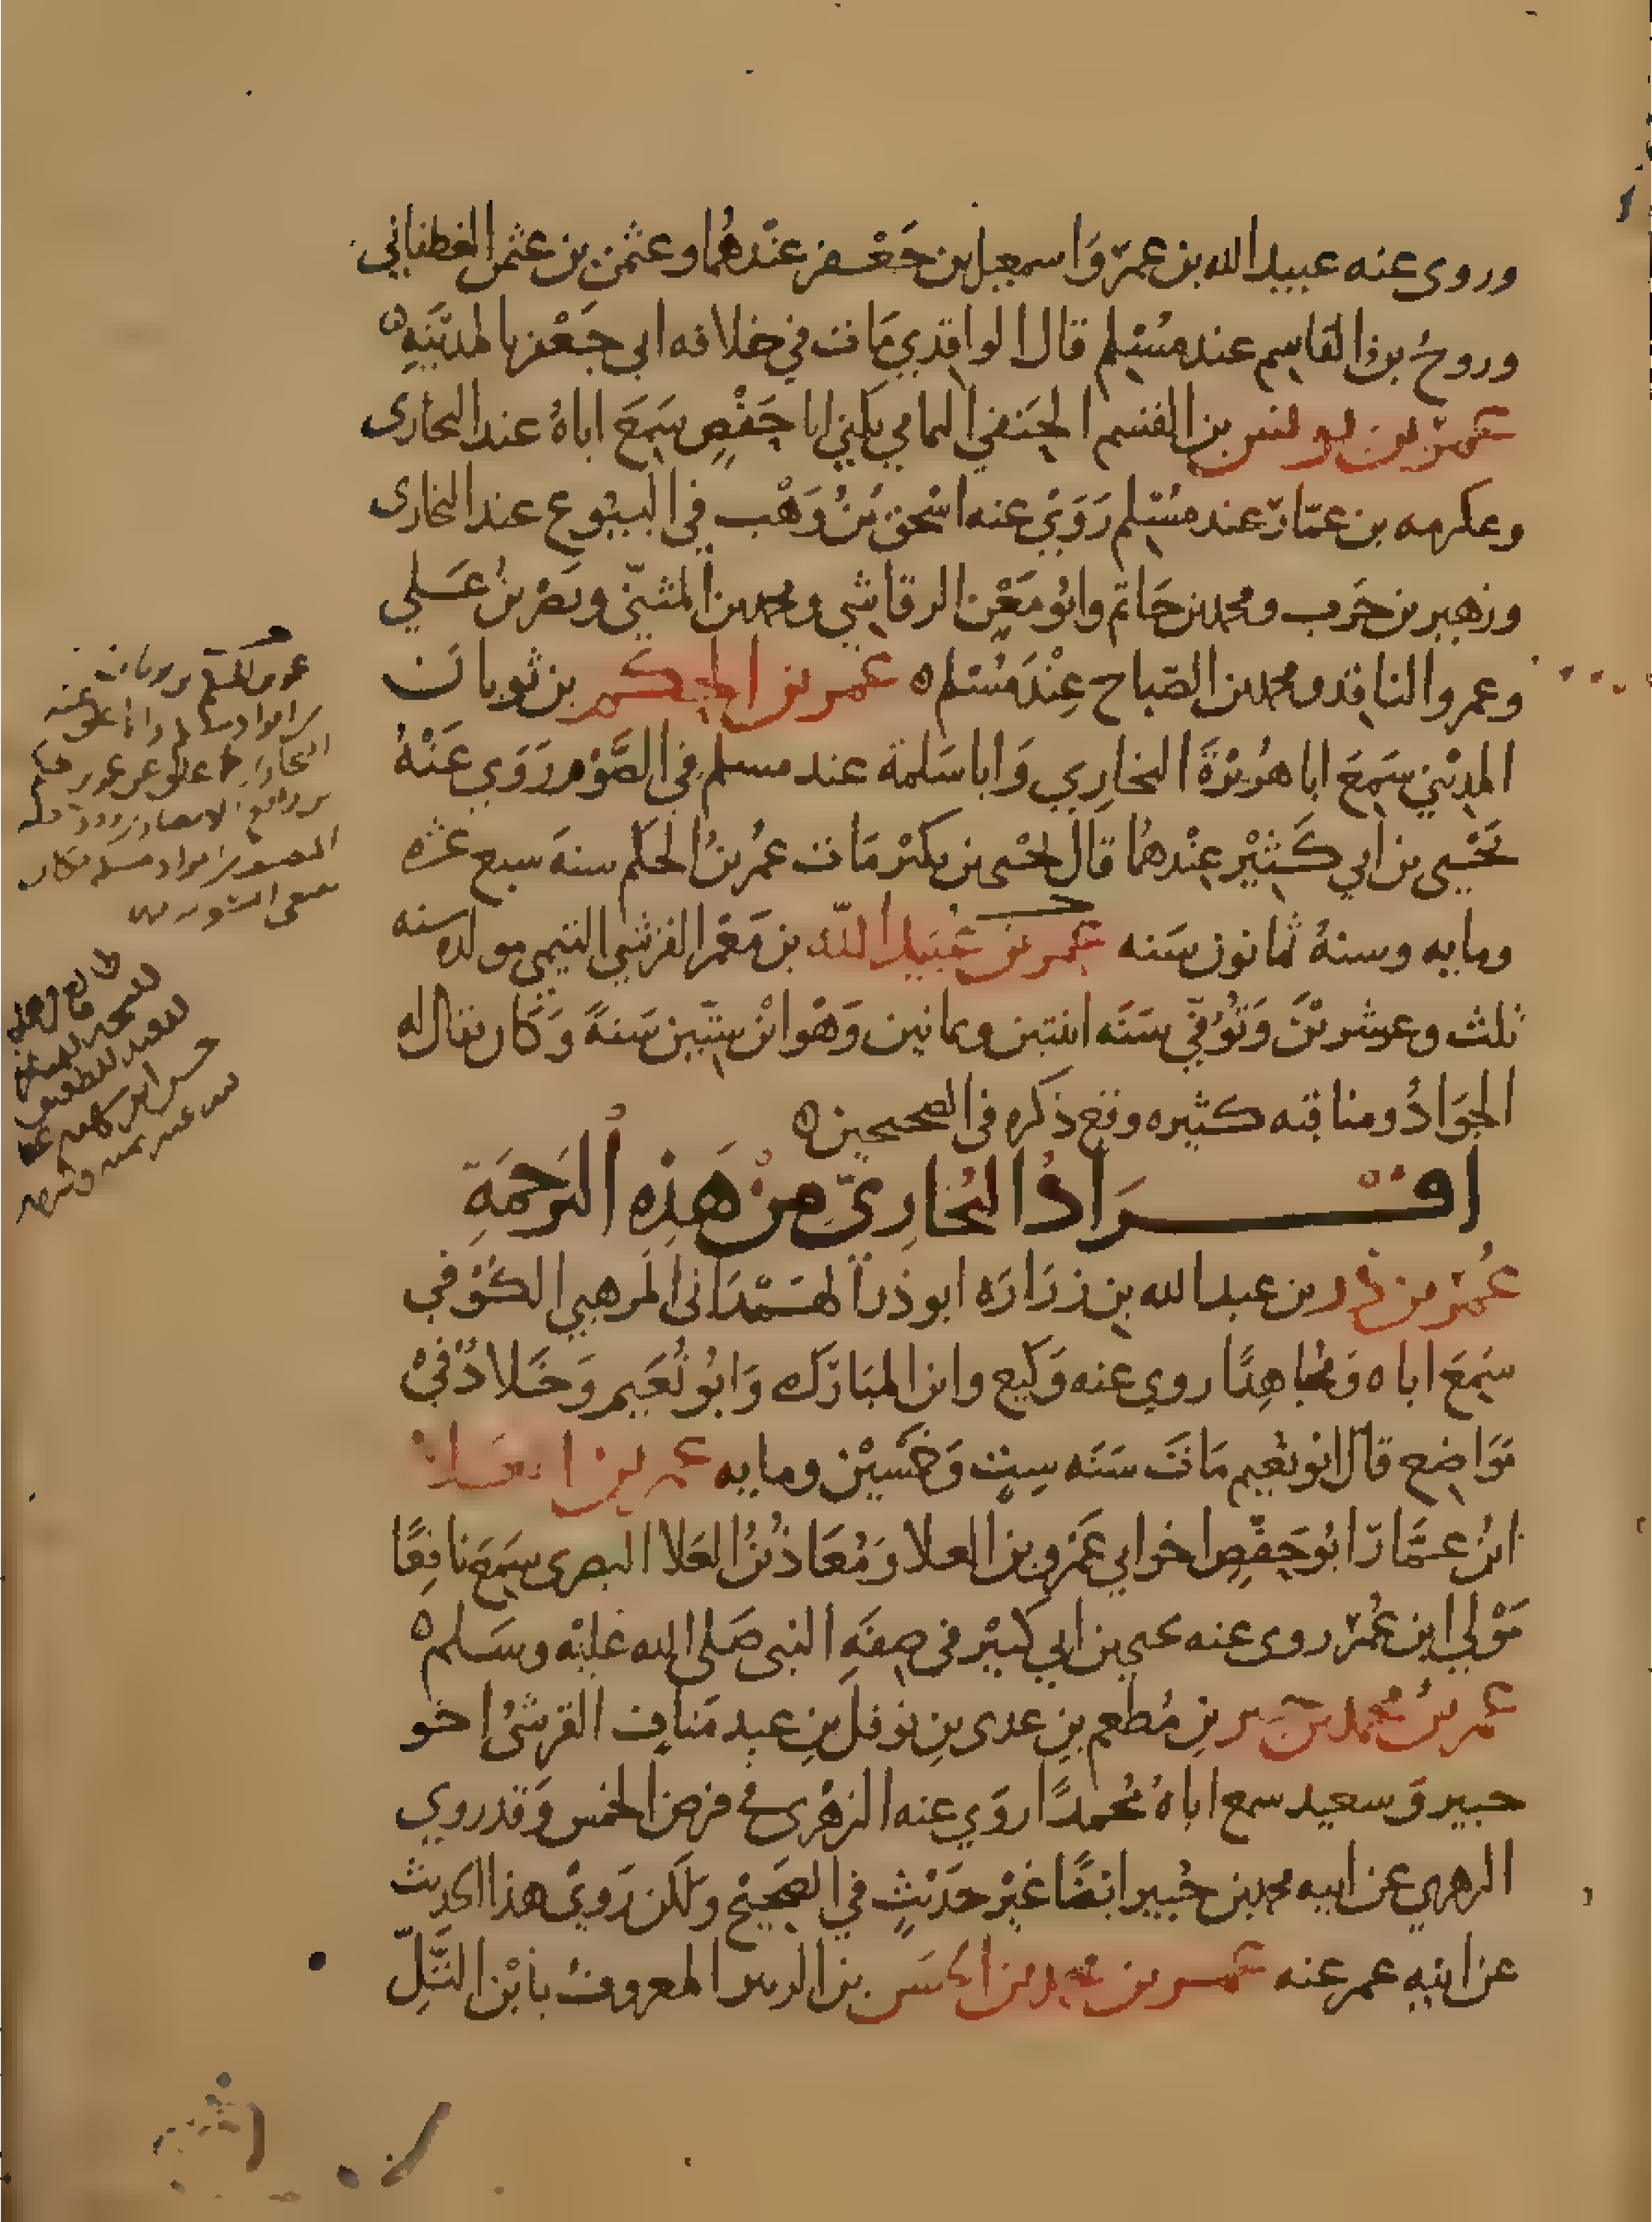 وروى عنه عبيد الله بن عمر وَاسمعيل بن جَعْفر عنْدهُما وعثمن بن عثمن الغطفاني
وروحُ بن القاسِم عند مسُلِم قال الواقِدي مَات في خلافه ابي جَعْفر بالمدينَةِ ه
عُمرَ بن يونس بن القسم الحَنفي اليمامي يكني ابا حَفْصٍ سَمِعَ اباهُ عند البخارى
وعكرمه بن عمّارَ عند مسُلِم رَوَيَ عنه اسْحق بنُ وَهْب في البيُوع عند البخارى
وزهير بن حَرب ومحمد بن حَاتم وابُو مَعْن الرقاشي ومحمد بن المثنّي ونصْر بنُ عَلي
وعمرو الناقِد ومحمد بن الصّباح عِنْدَ مسُلم ه عمر بن الحكم بن ثوبان
المدِيْني سَمِعَ ابا هُريْرَةَ البخارِي وَابا سَلمة عند مسلم في الصَّوْم رَوَي عَنْهُ
يَحْيي بن ابي كَثِيْر عِنْدهُما قال يحْيى بن بكير مَات عمُر بنُ الحكَم سنهَ سبع عشره
ومايه وسنهُ ثمانون سَنه عمر بن عُبَيد الله بن مَعْمَر القرشي التيمي مولده سنه
ثلث وعشريْنَ وَتوُفّيَ سَنَه اثنتين وثمانين وَهْو ابْن سِتّين سَنةً وَكَان يقال له
الجَوَادُ ومناقبه كثيره وقع ذكره في الصحيحين ه
افْرَادُ البُخارِيّ مِنْ هَذِه التَرجَمَةِ
عُمَر بن ذر بن عبد الله بن زرَارَه ابو ذر الهَمْدَاني المرهبي الكُوْفي
سَمِعَ اباه وَمُجاهِدًا روي عنه وَكيع وابن المبَارَك وَابُو نُعَيم وَخَلادٌ فيْ
مَوَاضِع قال ابُو نعُيم مَاتَ سَنَه سِتٍ وَخَمْسِيْن ومايه عمر بن العلا
ابنُ عمَّارَ ابُو حَفْصٍ اخو ابي عَمْرو بن العلا وَمُعَاذ بْنُ العَلا البصرى سَمِعَ نافِعًا
مَوْلي ابن عُمَر روى عنه يحيى بن ابي كثيْر في صِفَهِ النبى صَلى الله عليْه وسَلم ه
عمر بنُ مُحمد بن جبير بنِ مُطعم بنِ عدى بِن نوفلَ بنِ عبدِ مَنافٍ القرشىُ اخو
جبير وَسعيد سمع اباهُ مُحمدًا روَي عنه الزهْرى في فرض الخمس وَقد روي
الزهري عن ابيه محمد بن جُبير ايْضًا غيْر حَديْثٍ في الصحِيْح وَلكن رَويَ هذا الحديث
عن ابنِهِ عمر عنه عمر بن محمد بن الحسَن بن الزبير المعروفُ بابْن التَّلّ